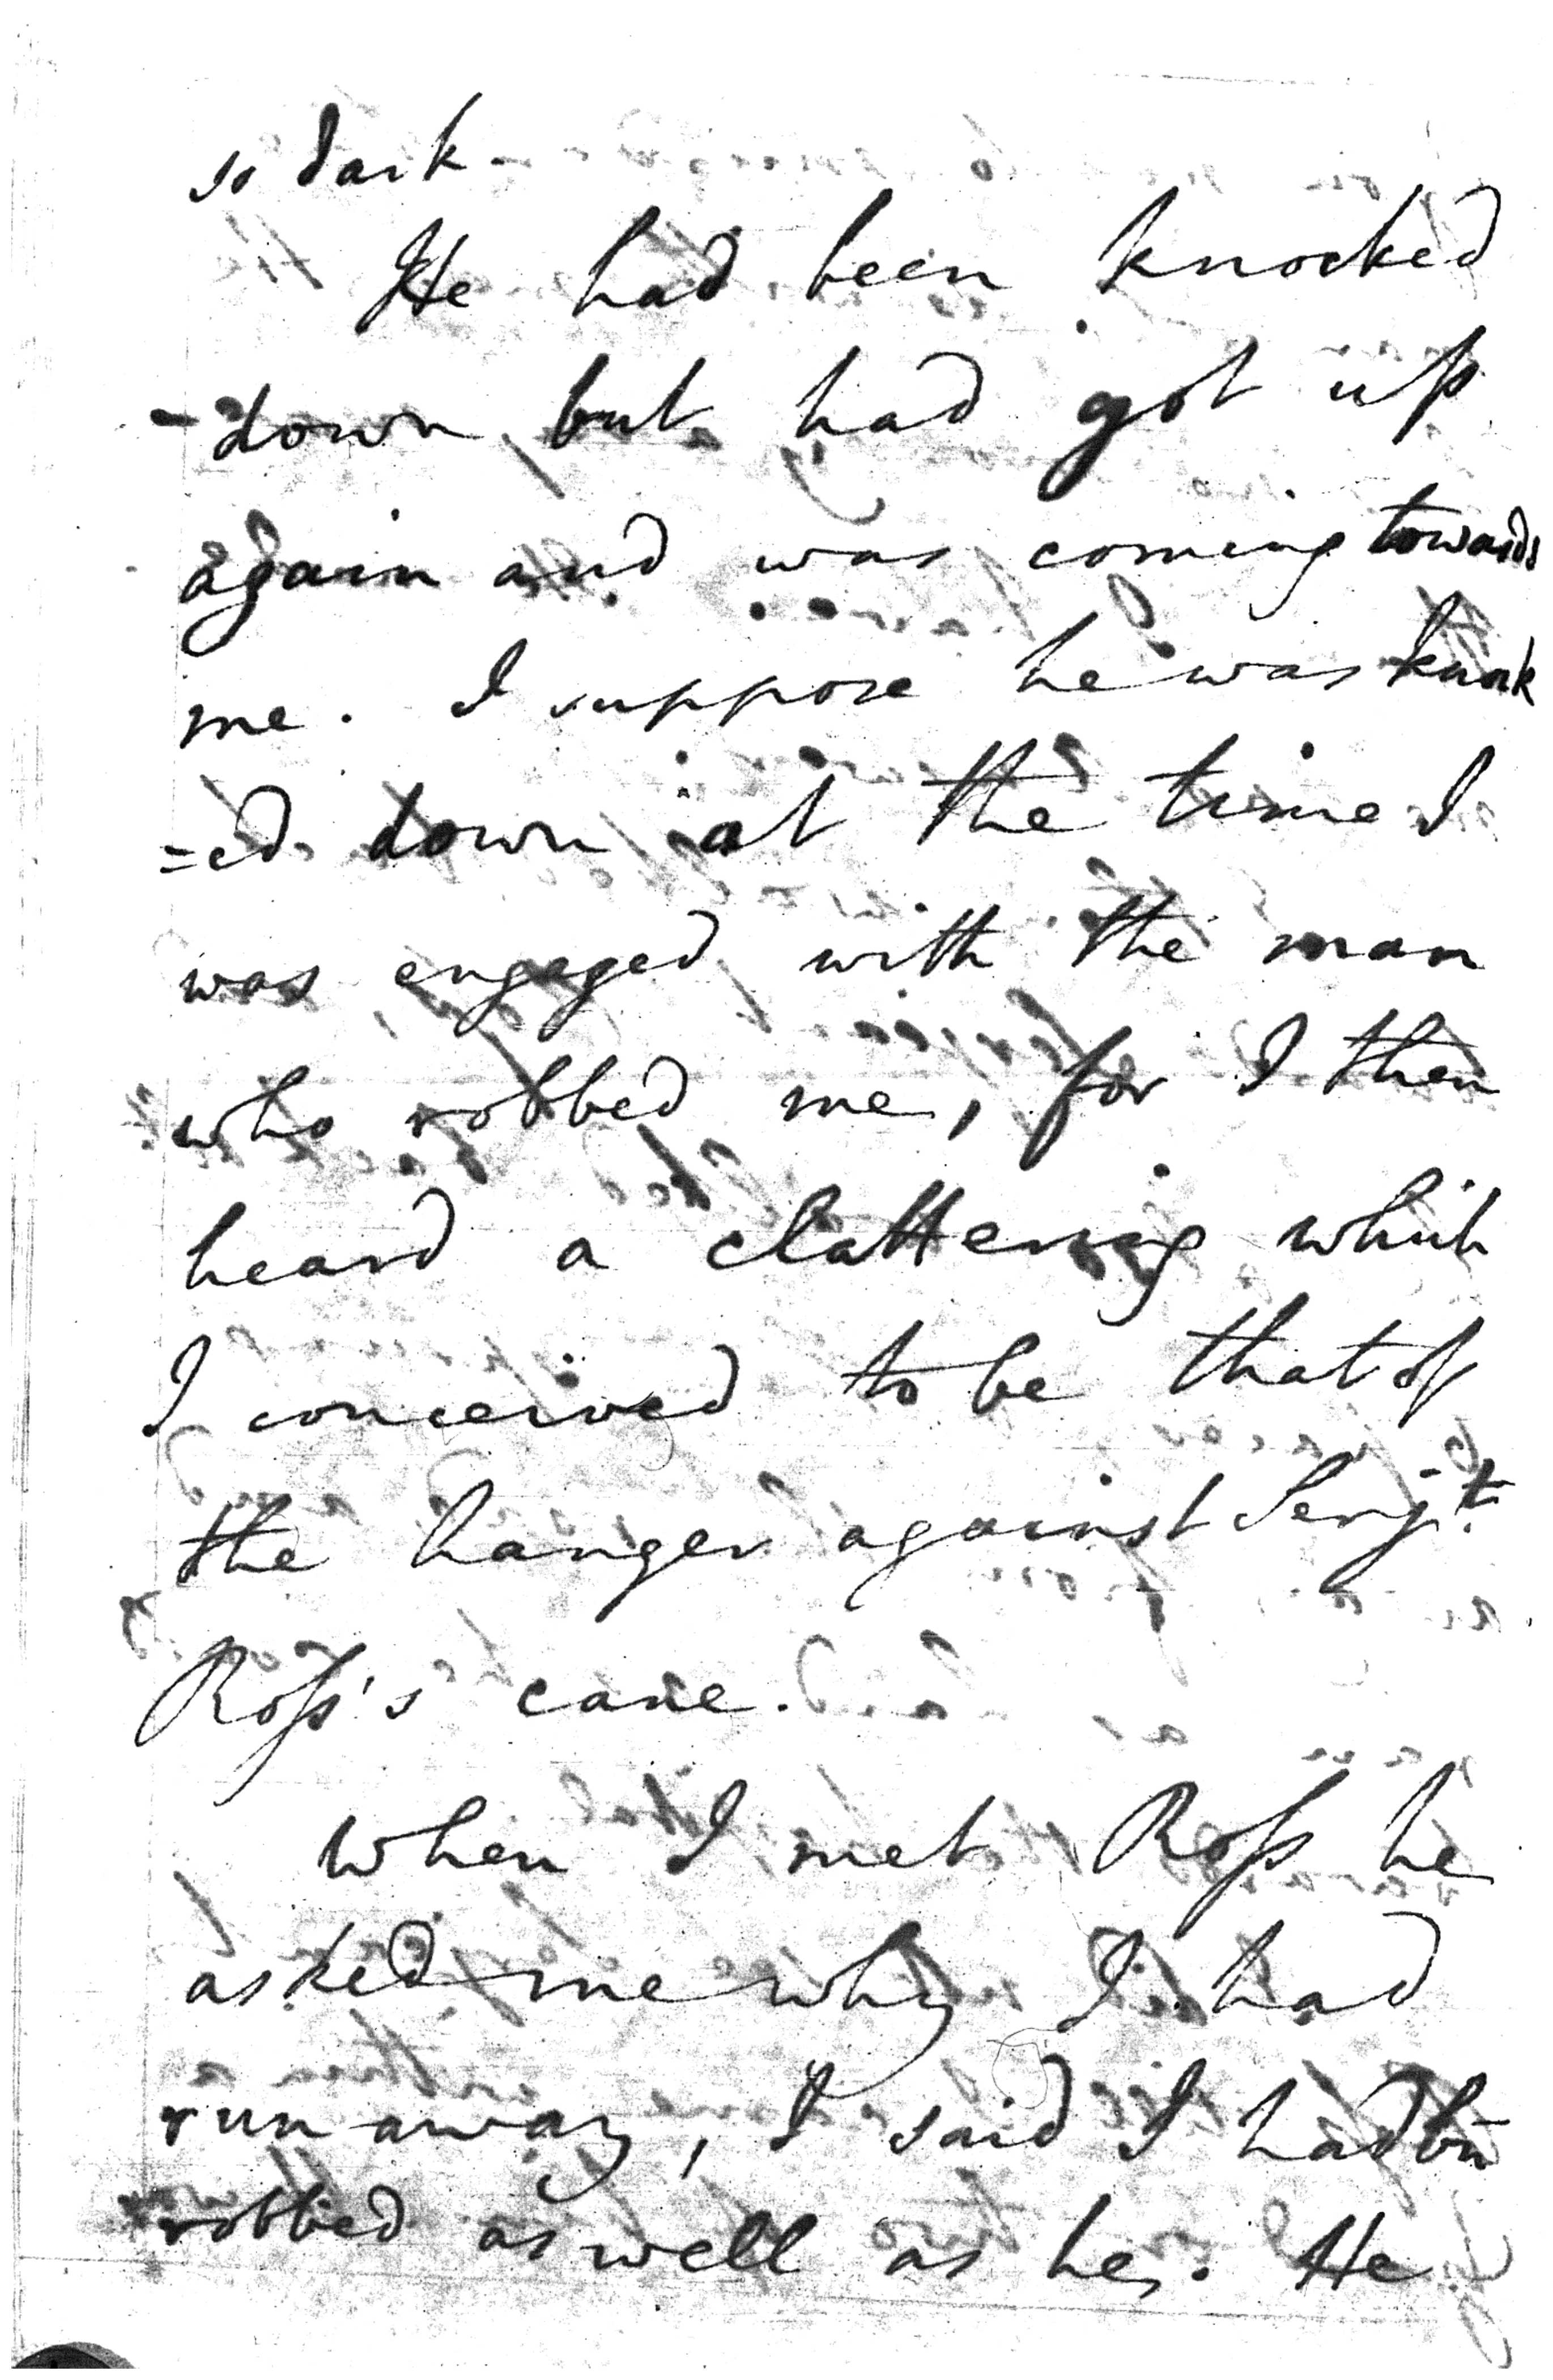 so dark -
He had been knocked
- down but had got up
again and was coming towards
me. I suppose he was knock
=ed down at the time I
was engaged with the man
who robbed me, for I then
heard a clattering which
I conceived to be that of
the hanger against Serjt.
Ross's cane.
When I met Ross he
asked me why I had
run away, I said I had bn
robbed as well as he. He